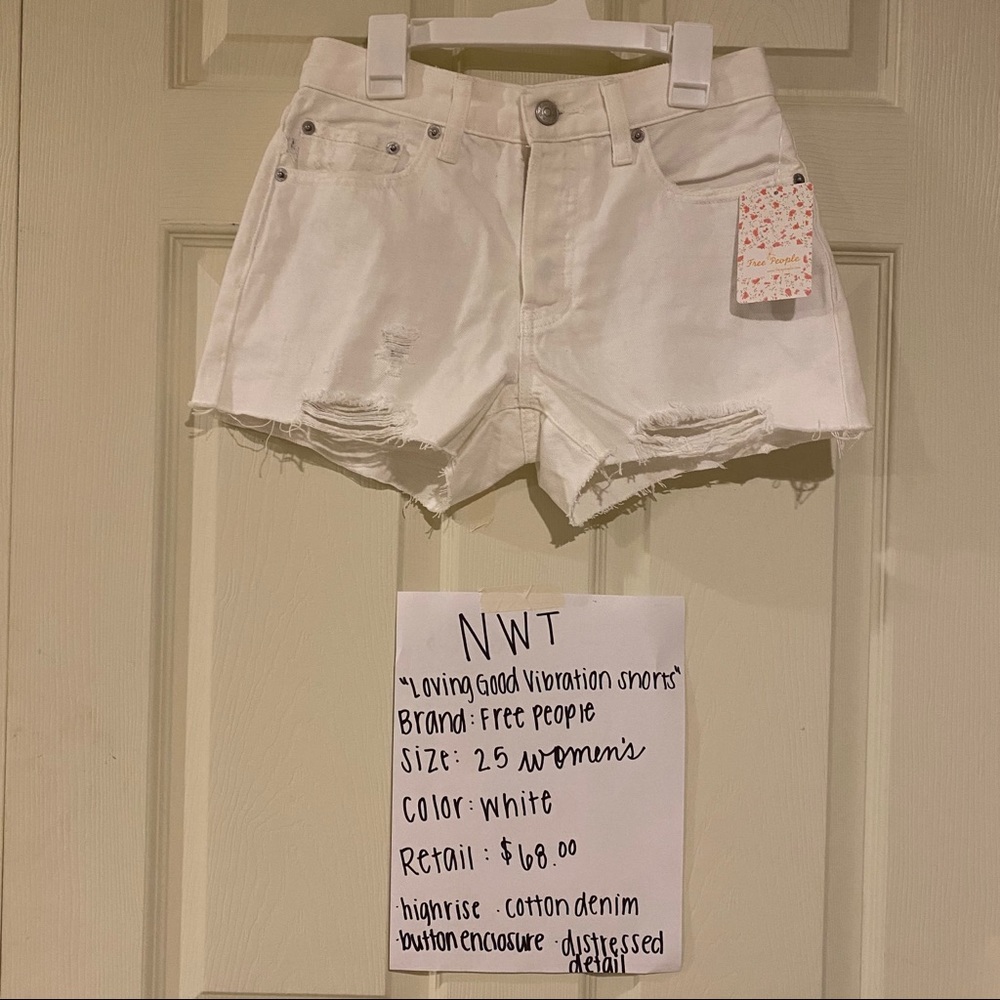 Free People
NWT
"Loving Good Vibration shorts"
Brand: Free people
Size: 25 women's
Color: White
Retail: $68.00
·highrise ·cotton denim
·button enclosure ·distressed
detail